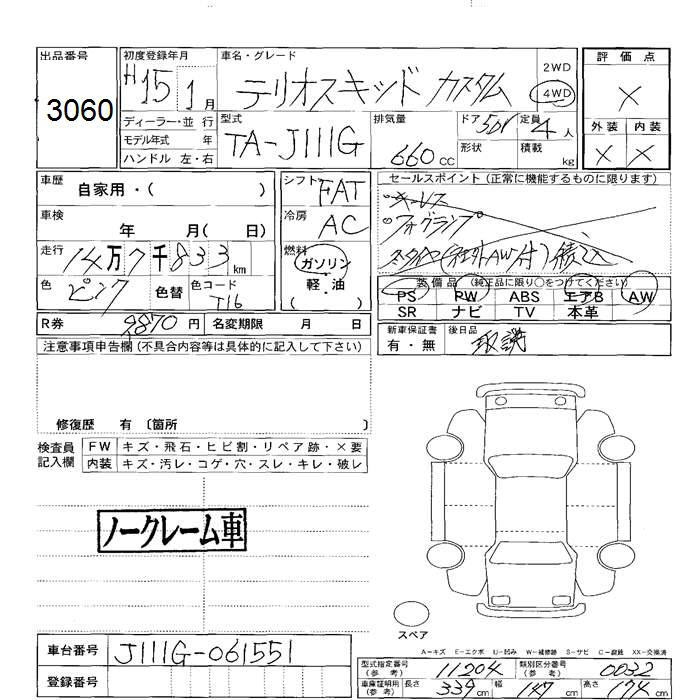 出品番号
3060
初度登録年月
H15 1月
車名・グレード
テリオスキッド カスタム
2WD
4WD
評価点
×
外装 内装
× ×
ディーラー・並行
モデル年式 年
ハンドル 左・右
型式
TA-J111G
排気量
660cc
ドア 5D
形状
定員 4人
積載 kg
車歴
自家用・( )
車検
年 月( 日)
走行
14万7千833km
色
ピンク
色替
色コード
T16
シフト FAT
冷房
AC
燃料
ガソリン
軽・油
( )
R券
9870円
名変期限 月 日
セールスポイント (正常に機能するものに限ります)
キーレス
フォグランプ
冬タイヤ(社外AW付)積込
装備品 (純正品に限り○をつけてください)
PS PW ABS エアB AW
SR ナビ TV 本革
新車保証書
有・無
後日品
取説
注意事項申告欄 (不具合内容等は具体的に記入して下さい)
修復歴 有 〔箇所 〕
検査員
記入欄
FW キズ・飛石・ヒビ割・リペア跡・×要
内装 キズ・汚レ・コゲ・穴・スレ・キレ・破レ
ノークレーム車
スペア
A-キズ E-エクボ U-凹み W-補修跡 S-サビ C-腐蝕 XX-交換済
車台番号
J111G-061551
登録番号
型式指定番号
(参考)
11204
類別区分番号
(参考)
0032
車庫証明用
(参考)
長さ 339cm 幅 147cm 高さ 174cm